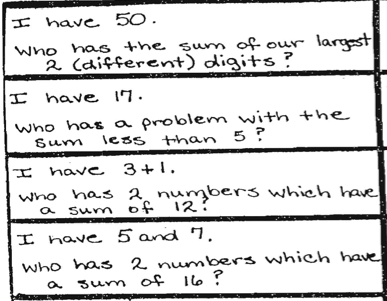 I have 50.
Who has the sum of our largest
2 (different) digits?
I have 17.
Who has a problem with the
sum less than 5?
I have 3+1.
Who has 2 numbers which have
a sum of 12?
I have 5 and 7.
Who has 2 numbers which have
a sum of 16?